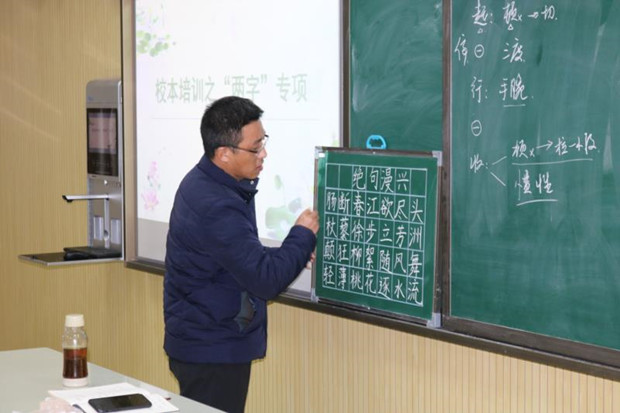 校本培训之“两字”专项
绝句漫兴
肠断春江欲尽头
杖藜徐步立芳洲
颠狂柳絮随风舞
轻薄桃花逐水流
起：顿→切
行：手腕
收
惯性